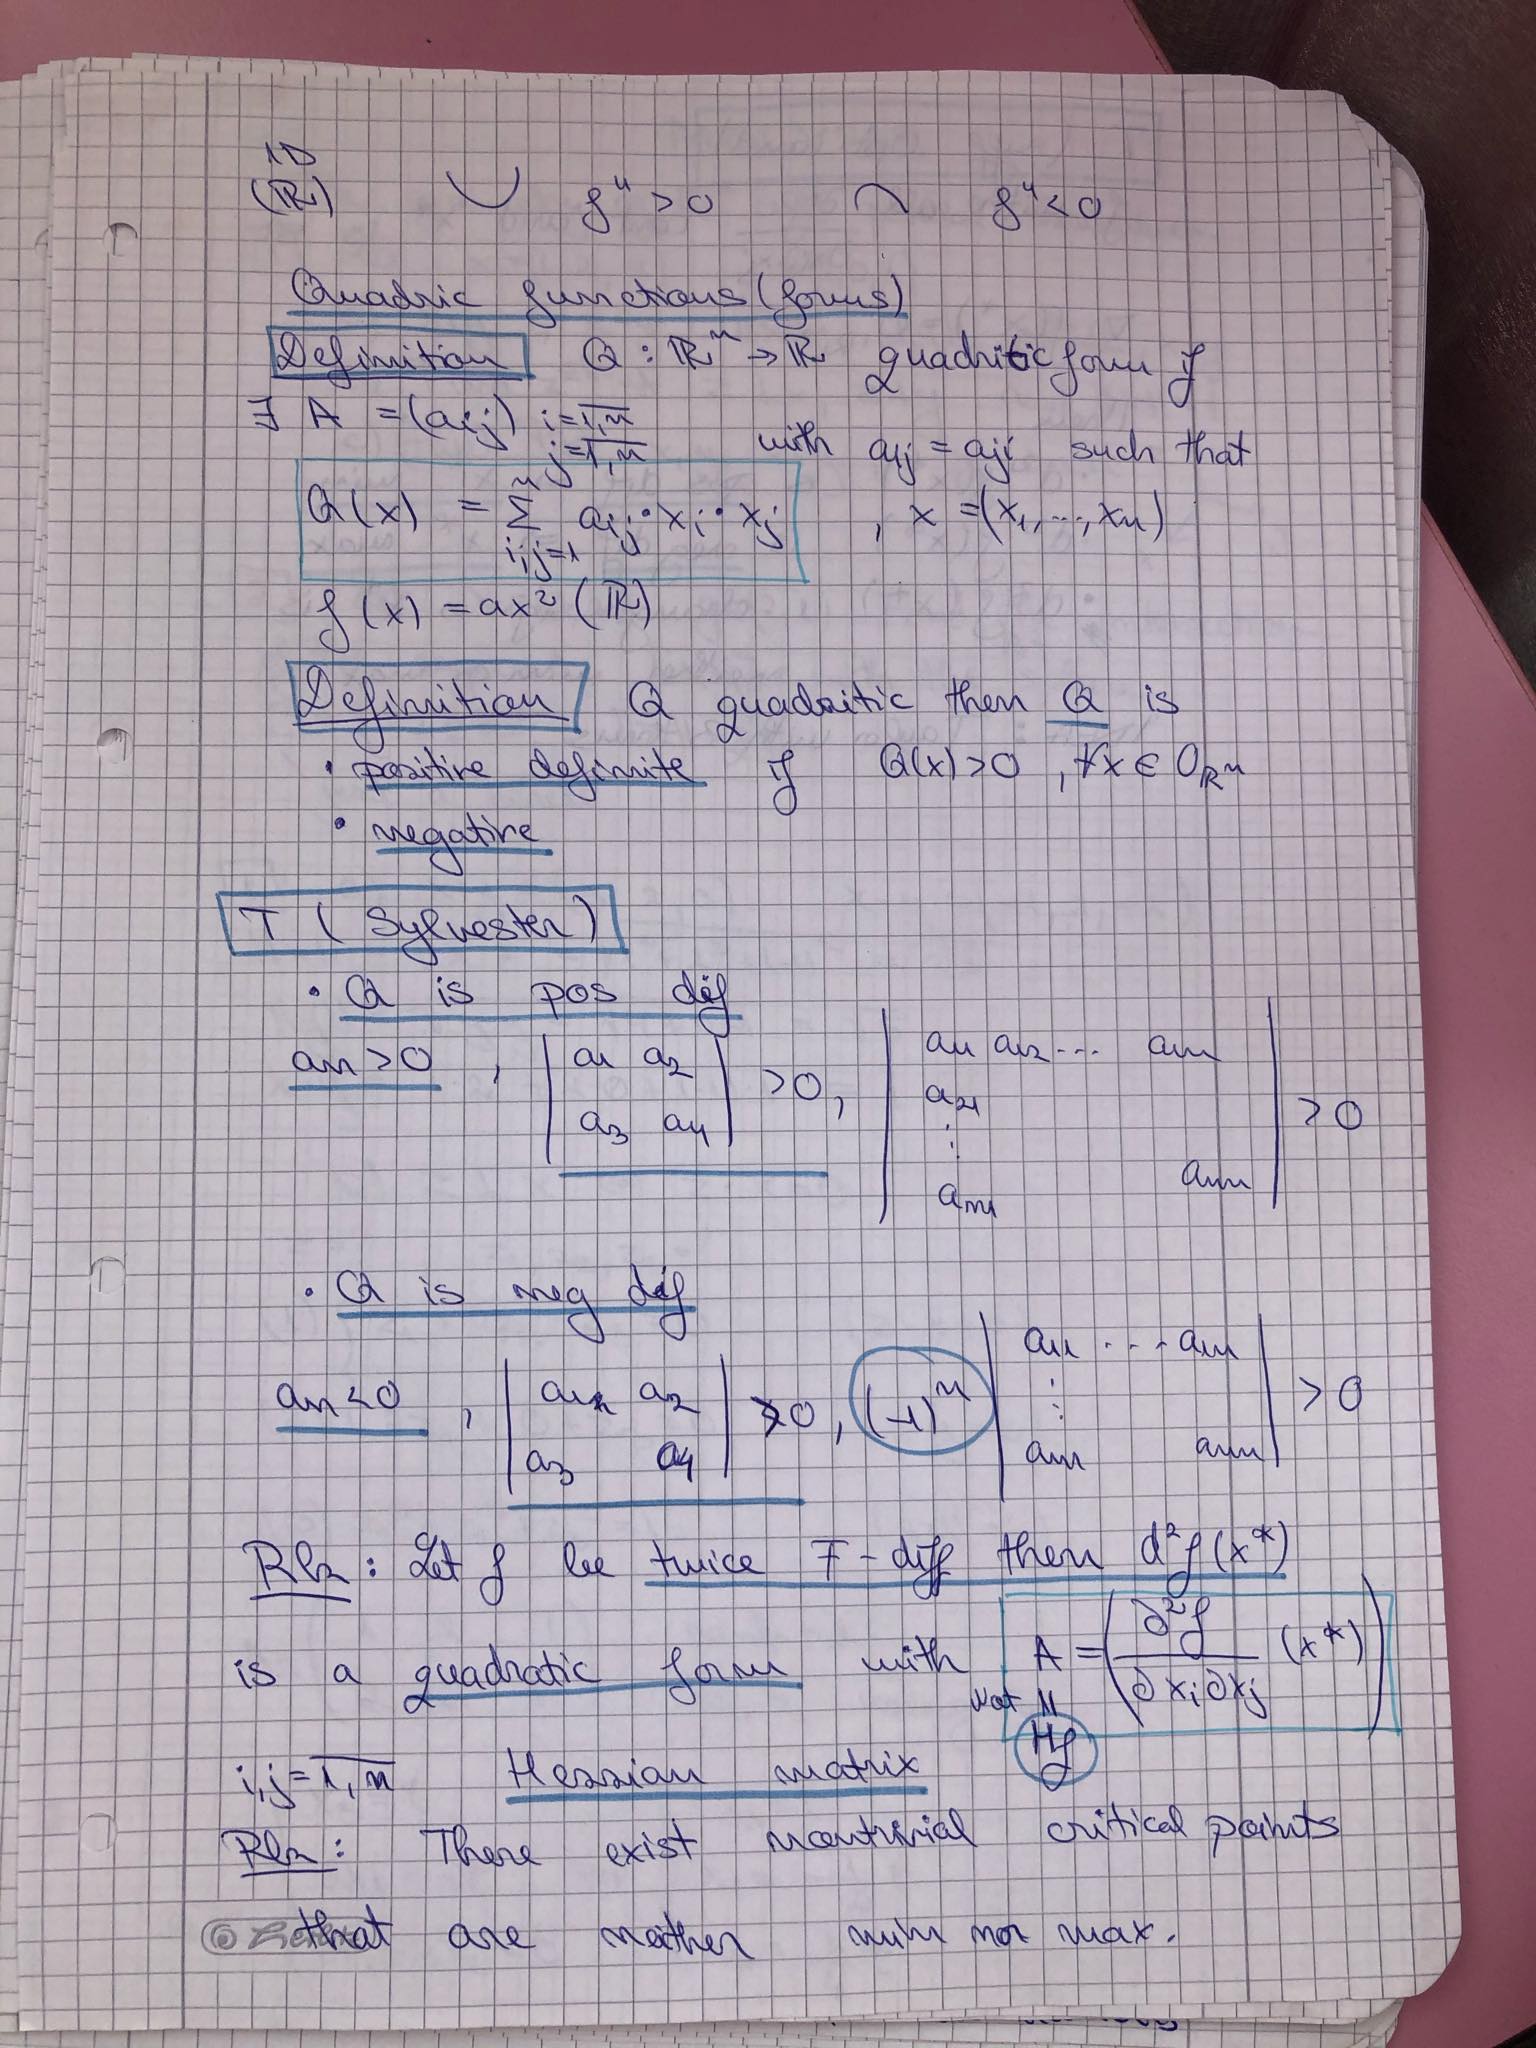 1D
(ℝ) f" > 0 f" < 0
Quadric functions (forms)
Definition Q : ℝⁿ → ℝ quadritic form if
∃ A = (aij) i=1,n
j=1,n with aij = aji such that
Q(x) = Σ aij · xi · xj , x = (x1, ..., xn)
n
i,j=1
f(x) = ax² (ℝ)
Definition Q quadritic then Q is
• positive definite if Q(x) > 0 , ∀x ∈ 0ℝⁿ
• negative
T (Sylvester)
• Q is pos def
a11 > 0 , | a1 a2 | > 0, | a11 a12 ... a1n | > 0
a3 a4 a21
⋮
an1 ann
• Q is neg def
a11 < 0 , | a11 a2 | > 0, (-1)ⁿ | a11 ... a1n | > 0
a3 a4 ⋮
an1 ann
Rk : Let f be twice F-diff then d²f(x*)
is a quadratic form with A = (∂²f / ∂xi∂xj (x*))
Not =
Hf
i,j = 1,n Hessian matrix
Rk : There exist nontrivial critical points
that are neither min nor max.